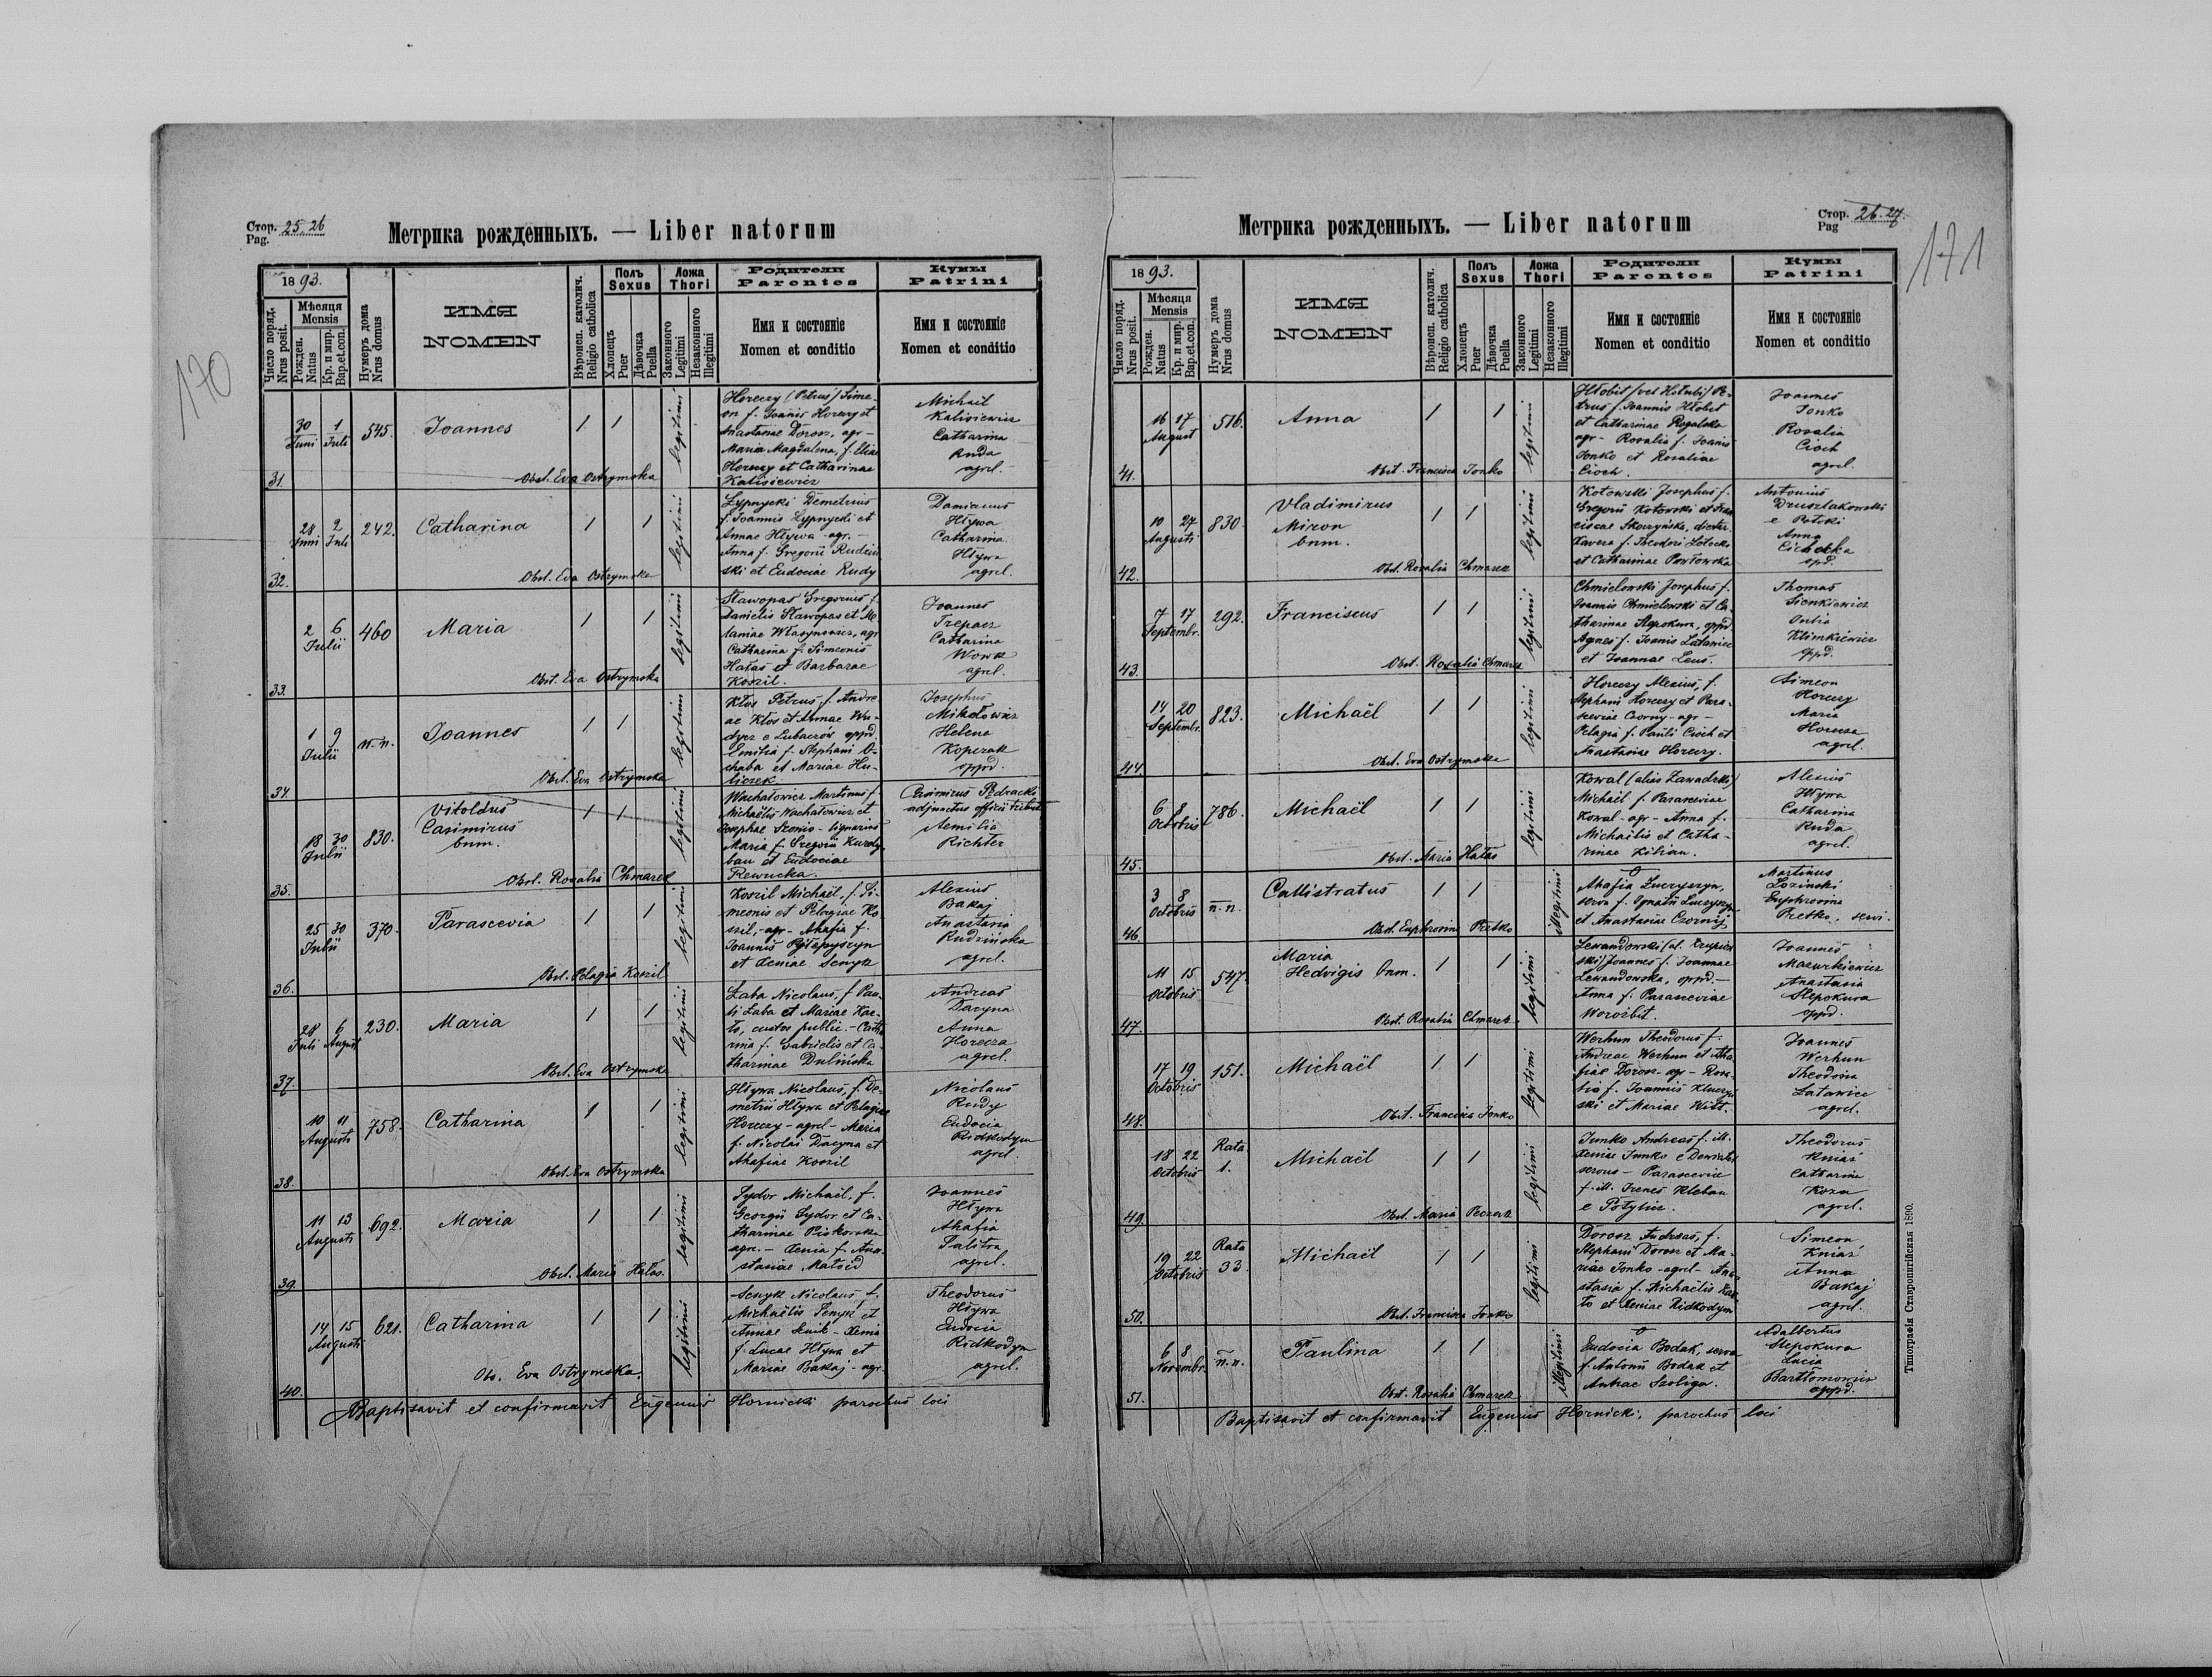 170
Стор. Pag. 25. 26
Метрика рожденныхъ. — Liber natorum
1893.
Число поряд. Nrus posit.
Мѣсяця Mensis
Рожден. Natus
Кр. и мир. Bap.et.con.
Нумеръ дома Nrus domus
ИМЯ
NOMEN
Вѣроисп. католич. Religio catholica
Полъ Sexus
Хлопецъ Puer
Дѣвочка Puella
Ложа Thori
Законного Legitimi
Незаконного Illegitimi
Родители Parentes
Имя и состоянiе
Nomen et conditio
Кумы Patrini
Имя и состоянiе
Nomen et conditio
31. 30 Juni 1 Juli 545. Joannes 1 1 legitimi
Obst. Eva Ostrymska
Horeczy (Petrus) Sime-
on f. Joanis Horeczy et
Anastasiae Dorosz, agr-
Maria Magdalena, f. Eliae
Horeczy et Catharinae
Kalisiewicz
Michail
Kalisiewicz
Catharina
Ruda
agrel.
32. 28 Juni 2 Juli 242. Catharina 1 1 legitimi
Obst. Eva Ostrymska
Lypnycki Demetrius
f. Joannis Lypnycki et
Annae Hlywa - agr. -
Anna f. Gregorii Rudzin
ski et Eudociae Rudy
Damianus
Hlywa
Catharina
Hlywa
agrel.
33. 2 6 Julii 460 Maria 1 1 legitimi
Obst. Eva Ostrymska
Stawopas Gregorius f.
Danielis Stawopas et Me
laniae, agr
Catharina f. Simeonis
Hałas et Barbarae
Koszil.
Joannes
Trepacz
Catharina
Wowk
agrel.
34. 1 9 Julii n. n. Joannes 1 1 legitimi
Obst. Eva Ostrymska
Kłos Petrus f. Andre
ae Kłos et Annae Wa-
dycz e Lubaczów oppd.
Emilia f. Stephani O-
chaba et Mariae Hu-
liczek
Josephus
Mikołowicz
Helena
Kopczak
oppd.
35. 18 30 Julii 830. Vitoldus
Casimirus
bnm. 1 1 legitimi
Obst. Rosalia Chmarek
Wachałowicz Martinus f.
Michaëlis Wachałowicz et
Josephae - lignarius
Maria f. Gregorii
ban et Eudociae
Rewucka.
Casimirus
adjunctus officii tribut
Aemilia
Richter
36. 25 30 Julii 370. Parascevia 1 1 legitimi
Obst. Pelagia Koszil
Koszil Michaël, f. Si-
meonis et Pelagiae Ko
szil, - agr - Ahafia f.
Joannis
et Xeniae Senyk
Alexius
Bakaj
Anastasia
Rudzińska
agrel.
37. 28 Juli 6 August 230. Maria 1 1 legitimi
Obst. Eva Ostrymska
Łaba Nicolaus, f Pau-
li Łaba et Mariae Kas-
to, custos public. - Catha
rina f. Gabrielis et Ca-
tharinae Dulińska
Andreas
Dacyna
Anna
Horecza
agrel.
38. 10 11 Augusti 758. Catharina 1 1 legitimi
Obst. Eva Ostrymska
Hlywa Nicolaus, f. De-
metrii Hlywa et Pelagiae
Horeczy - agrel - Maria
f. Nicolai Dacyna et
Ahafiae Koszil
Nicolaus
Rudy
Eudocia
Ridkodym
agrel.
39. 11 13 Augusti 692. Maria 1 1 legitimi
Obst. Maria Hałas.
Sydor Michaël, f.
Georgii Sydor et Ca-
tharinae Piskorska
agr. - Xenia f. Ana-
stasiae Matoid
Joannes
Hlywa
Ahafia
Palitra
agrel.
40. 14 15 Augusti 621. Catharina 1 1 legitimi
Obs. Eva Ostrymska.
Senyk Nicolaus f.
Michaëlis Senyk et
Annae - Xenia
f. Lucae Hlywa et
Mariae Bakaj - agr.
Theodorus
Hlywa
Eudocia
Ridkodym
agrel.
Baptisavit et confirmavit Eugenius Hornicki parochus loci
171
Стор. Pag 26. 27.
Метрика рожденныхъ. — Liber natorum
1893.
Число поряд. Nrus posit.
Мѣсяця Mensis
Рожден. Natus
Кр. и мир. Bap.et.con.
Нумеръ дома Nrus domus
ИМЯ
NOMEN
Вѣроисп. католич. Religio catholica
Полъ Sexus
Хлопецъ Puer
Дѣвочка Puella
Ложа Thori
Законного Legitimi
Незаконного Illegitimi
Родители Parentes
Имя и состоянiе
Nomen et conditio
Кумы Patrini
Имя и состоянiе
Nomen et conditio
41. 16 17 August 516. Anna 1 1 legitimi
Obst. Francisca Jonko
Hłobit (vel) Pe-
trus f. Joannis Hłobit
et Catharinae Rogalska
agr - Rosalia f. Joanis
Jonko et Rosaliae
Cioch.
Joannes
Jonko
Rosalia
Cioch
agrel.
42. 10 27 Augusti 830. Vladimirus
Miron
bnm. 1 1 legitimi
Obst. Rosalia Chmarek
Kotowski Josephus f.
Gregorii Kotowski et Fran
ciscae Skoczyńska,
Xavera f. Theodori
et Catharinae Pawłowska
Antonius
e
Anna
Cichocka
opd.
43. 7 17 Septembr. 292. Franciscus 1 1 legitimi
Obst. Rosalia Chmarek
Chmielowski Josephus f.
Joannis Chmielowski et Ca-
tharinae Stepokura, oppd
Agnes f. Joanis Latawiec
et Joannae Leus.
Thomas
Sienkiewicz
Klimkiewicz
oppd.
44. 14 20 Septembr. 823. Michaël 1 1 legitimi
Obst. Eva Ostrymska
Horeczy Alexius, f.
Stephani Horeczy et Para-
sceviae Czorny - agr -
Pelagia f. Pauli Cioch et
Anastasiae Horeczy.
Simeon
Horeczy
Maria
Horecza
agrel.
45. 6 8 Octobris 786. Michaël 1 1 legitimi
Obst. Maria Hałas
Kowal (alias Zawadzki)
Michaël f. Parasceviae
Kowal - agr - Anna f.
Michaëlis et Catha-
rinae Kilian.
Alexius
Hlywa
Catharina
Ruda
agrel.
46. 3 8 Octobris n. n. Callistratus 1 1 illegitimi
Obst. Euphrosina Pretko
0
Ahafia Luczyszyn,
serva f. Ignatii Luczyszyn
et Anastasiae Czornij
Martinus
Lozinski
Euphrosina
Pretko, servi.
47. 11 15 Octobris 547. Maria
Hedvigis bnm. 1 1 legitimi
Obst. Rosalia Chmarek
Lewandowski (al.
ski) Joannes f. Joannae
Lewandowska, oppd. -
Anna f. Parasceviae
Worożbit.
Joannes
Mazurkiewicz
Anastasia
Stepokura
oppd.
48. 17 19 Octobris 151. Michaël 1 1 legitimi
Obst. Francisca Jonko
Werhun Theodorus f.
Andreae Werhun et Aha
fiae Dorosz - agr - Rosa-
lia f. Joannis
ski et Mariae Witt.
Joannes
Werhun
Theodosia
Latawiec
agrel.
49. 18 22 Octobris Rata 1. Michaël 1 1 legitimi
Obst. Maria
Junko Andreas f. ill.
Xeniae Junko e
servus - Parascevia
f. ill. Irenes Kleban
e Potylicz.
Theodorus
Kniaź
Catharina
Koza
agrel.
50. 19 22 Octobris Rata 33. Michaël 1 1 legitimi
Obst. Francisca Jonko
Dorosz Andreas, f.
Stephani Dorosz et Ma-
riae Jonko - agrel - Ana
stasia f. Michaëlis Kas
to et Xeniae Ridkodym
Simeon
Kniaź
Anna
Bakaj
agrel.
51. 6 8 Novembr. n. n. Paulina 1 1 illegitimi
Obst. Rosalia Chmarek
0
Eudocia Bodak, serva
f. Antonii Bodak et
Annae Szeliga.
Adalbertus
Stepokura
Lucia
Bartłomowicz
oppd.
Baptisavit et confirmavit Eugenius Hornicki, parochus loci
Типографiя Ставропигiйская 1890.